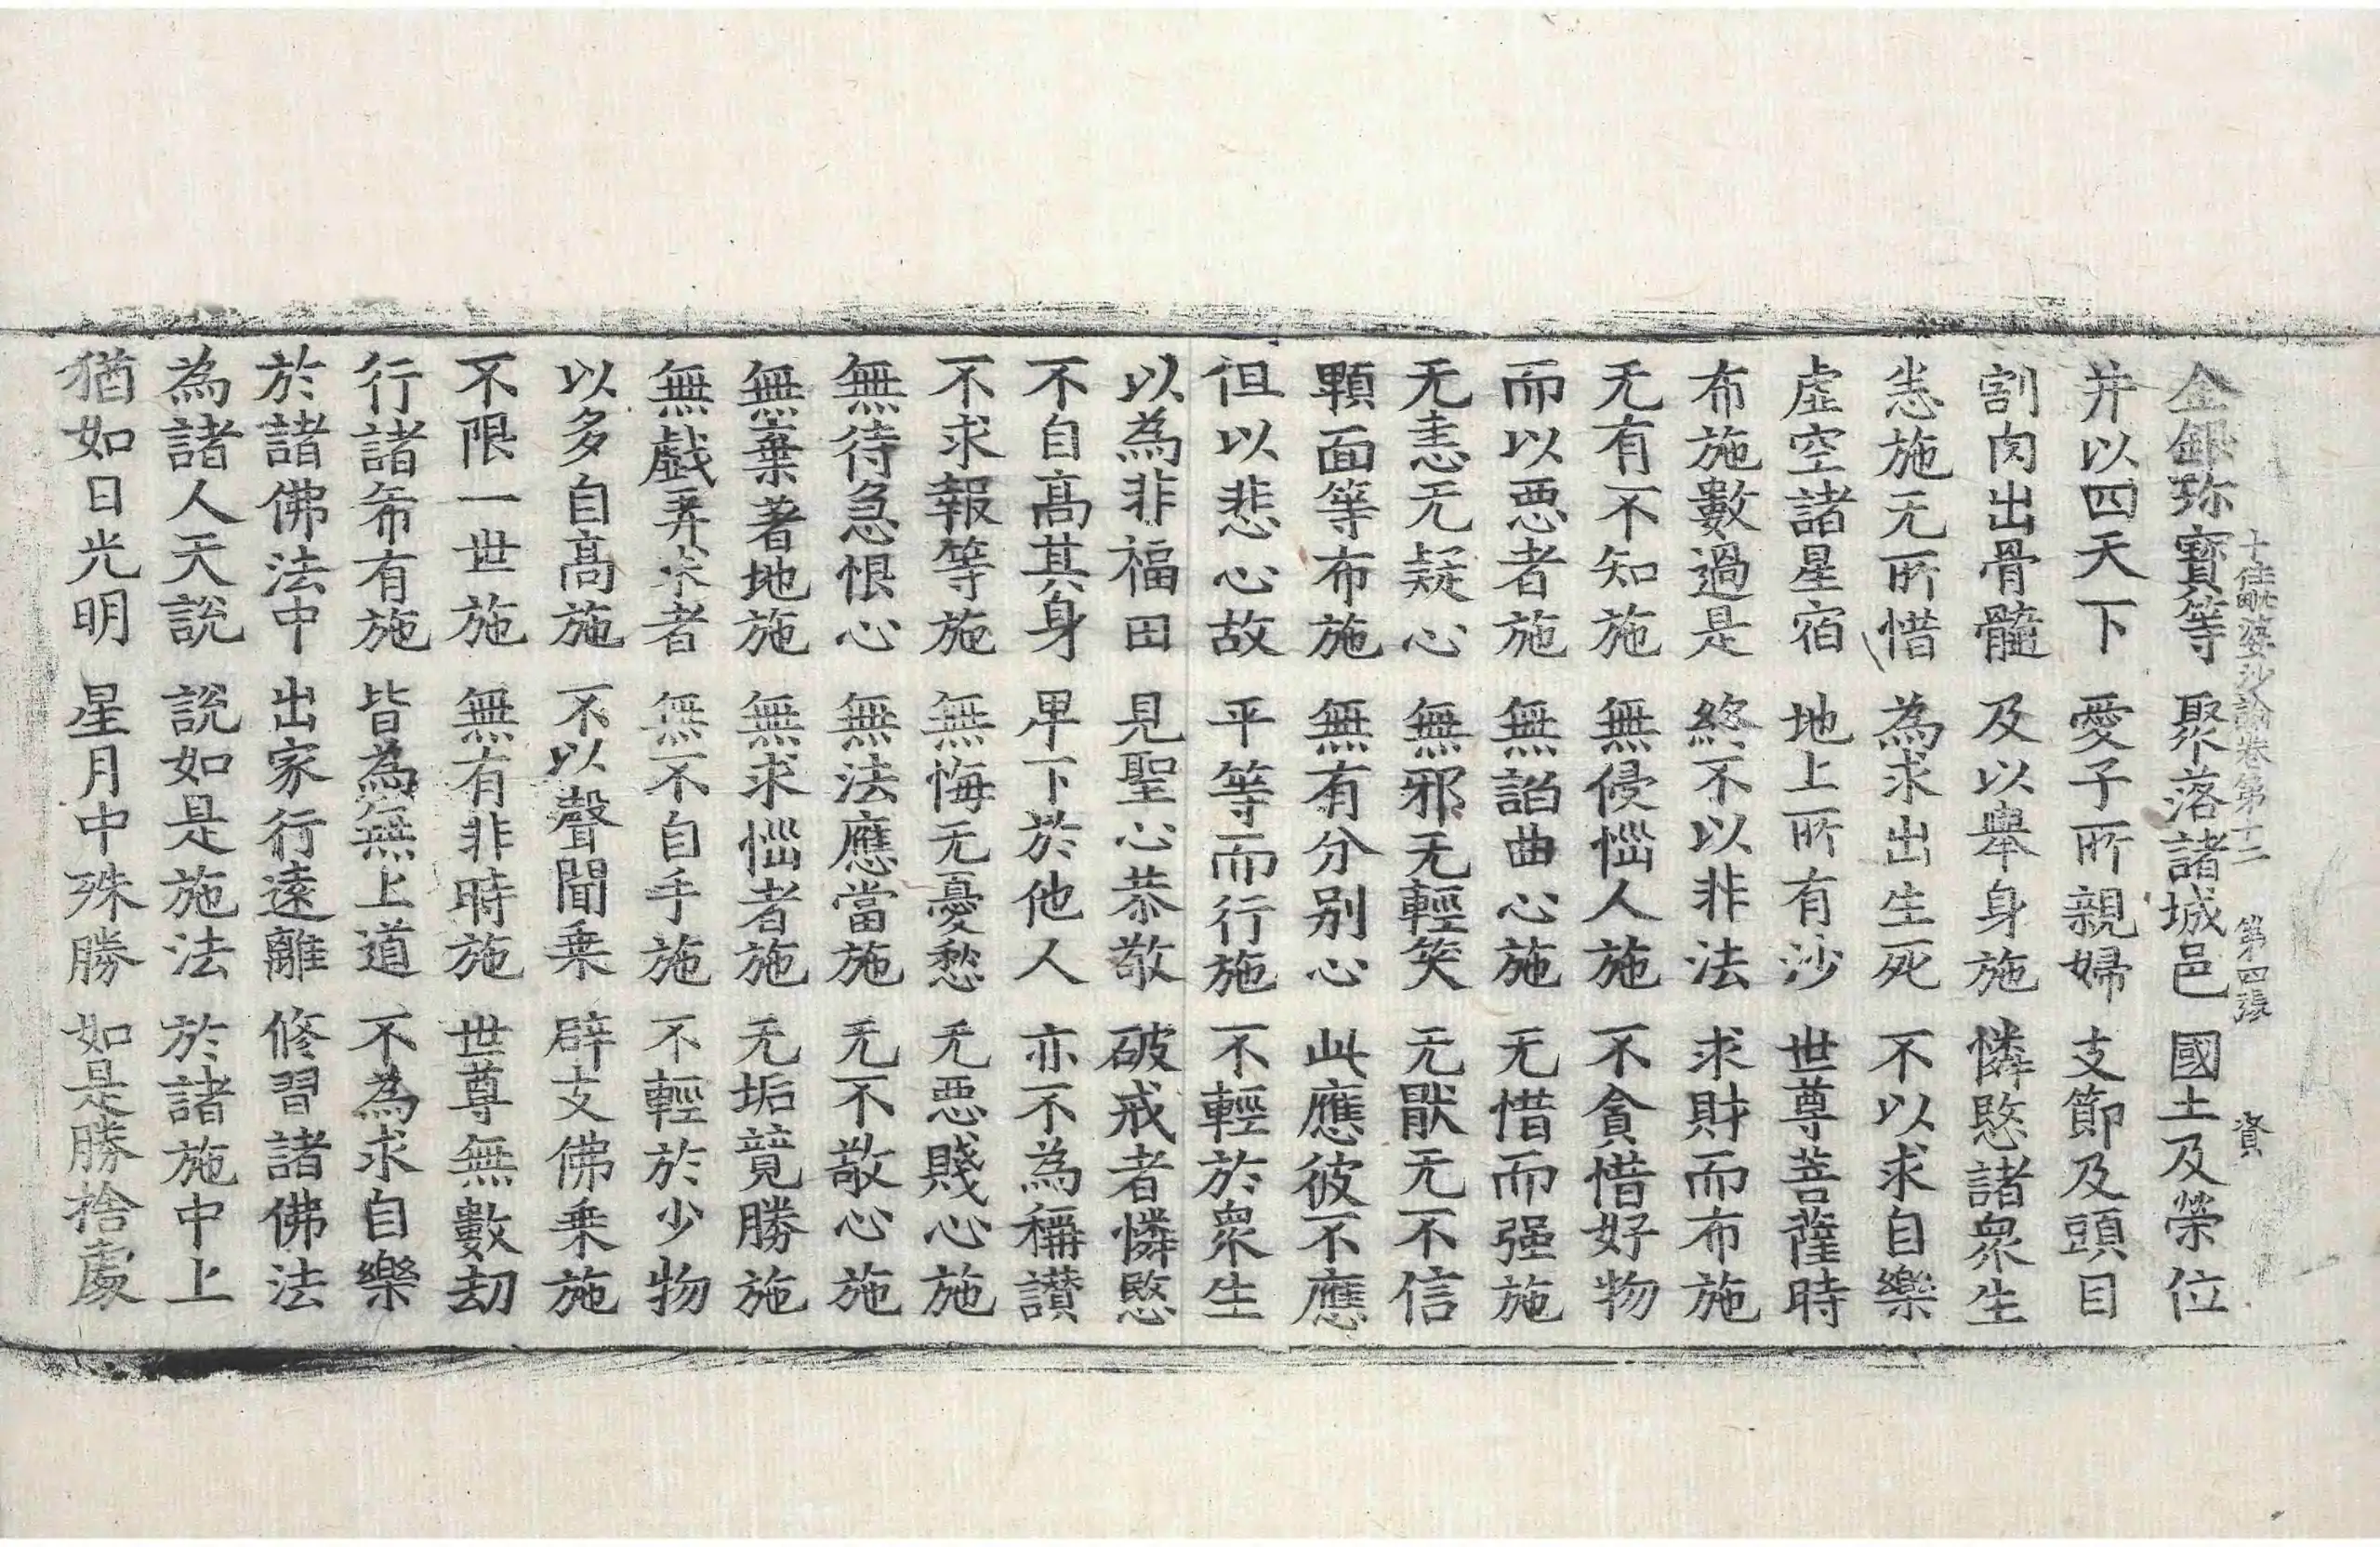 十住毗婆沙論卷第十二 第四張 資
金銀珎寳等 聚落諸城邑 國土及榮位
并以四天下 愛子所親婦 支節及頭目
割肉出骨髓 及以舉身施 憐愍諸衆生
恙施无所惜 為求出生死 不以求自樂
虛空諸星宿 地上所有沙 世尊菩薩時
布施數過是 終不以非法 求財而布施
无有不知施 無侵惱人施 不貪惜好物
而以惡者施 無諂曲心施 无惜而强施
无恚无疑心 無邪无輕笑 无猒无不信
顆面等布施 無有分别心 此應彼不應
但以悲心故 平等而行施 不輕於衆生
以為非福田 見聖心恭敬 破戒者憐愍
不自髙其身 卑下於他人 亦不為稱讃
不求報等施 無悔无憂愁 无惡賤心施
無待急恨心 無法應當施 无不敬心施
無棄著地施 無求惱者施 无垢競勝施
無戲弄求者 無不自手施 不輕於少物
以多自髙施 不以聲聞乗 辟支佛乗施
不限一世施 無有非時施 世尊無數劫
行諸希有施 皆為無上道 不為求自樂
於諸佛法中 出家行遠離 修習諸佛法
為諸人天說 說如是施法 於諸施中上
猶如日光明 星月中殊勝 如是勝捨處